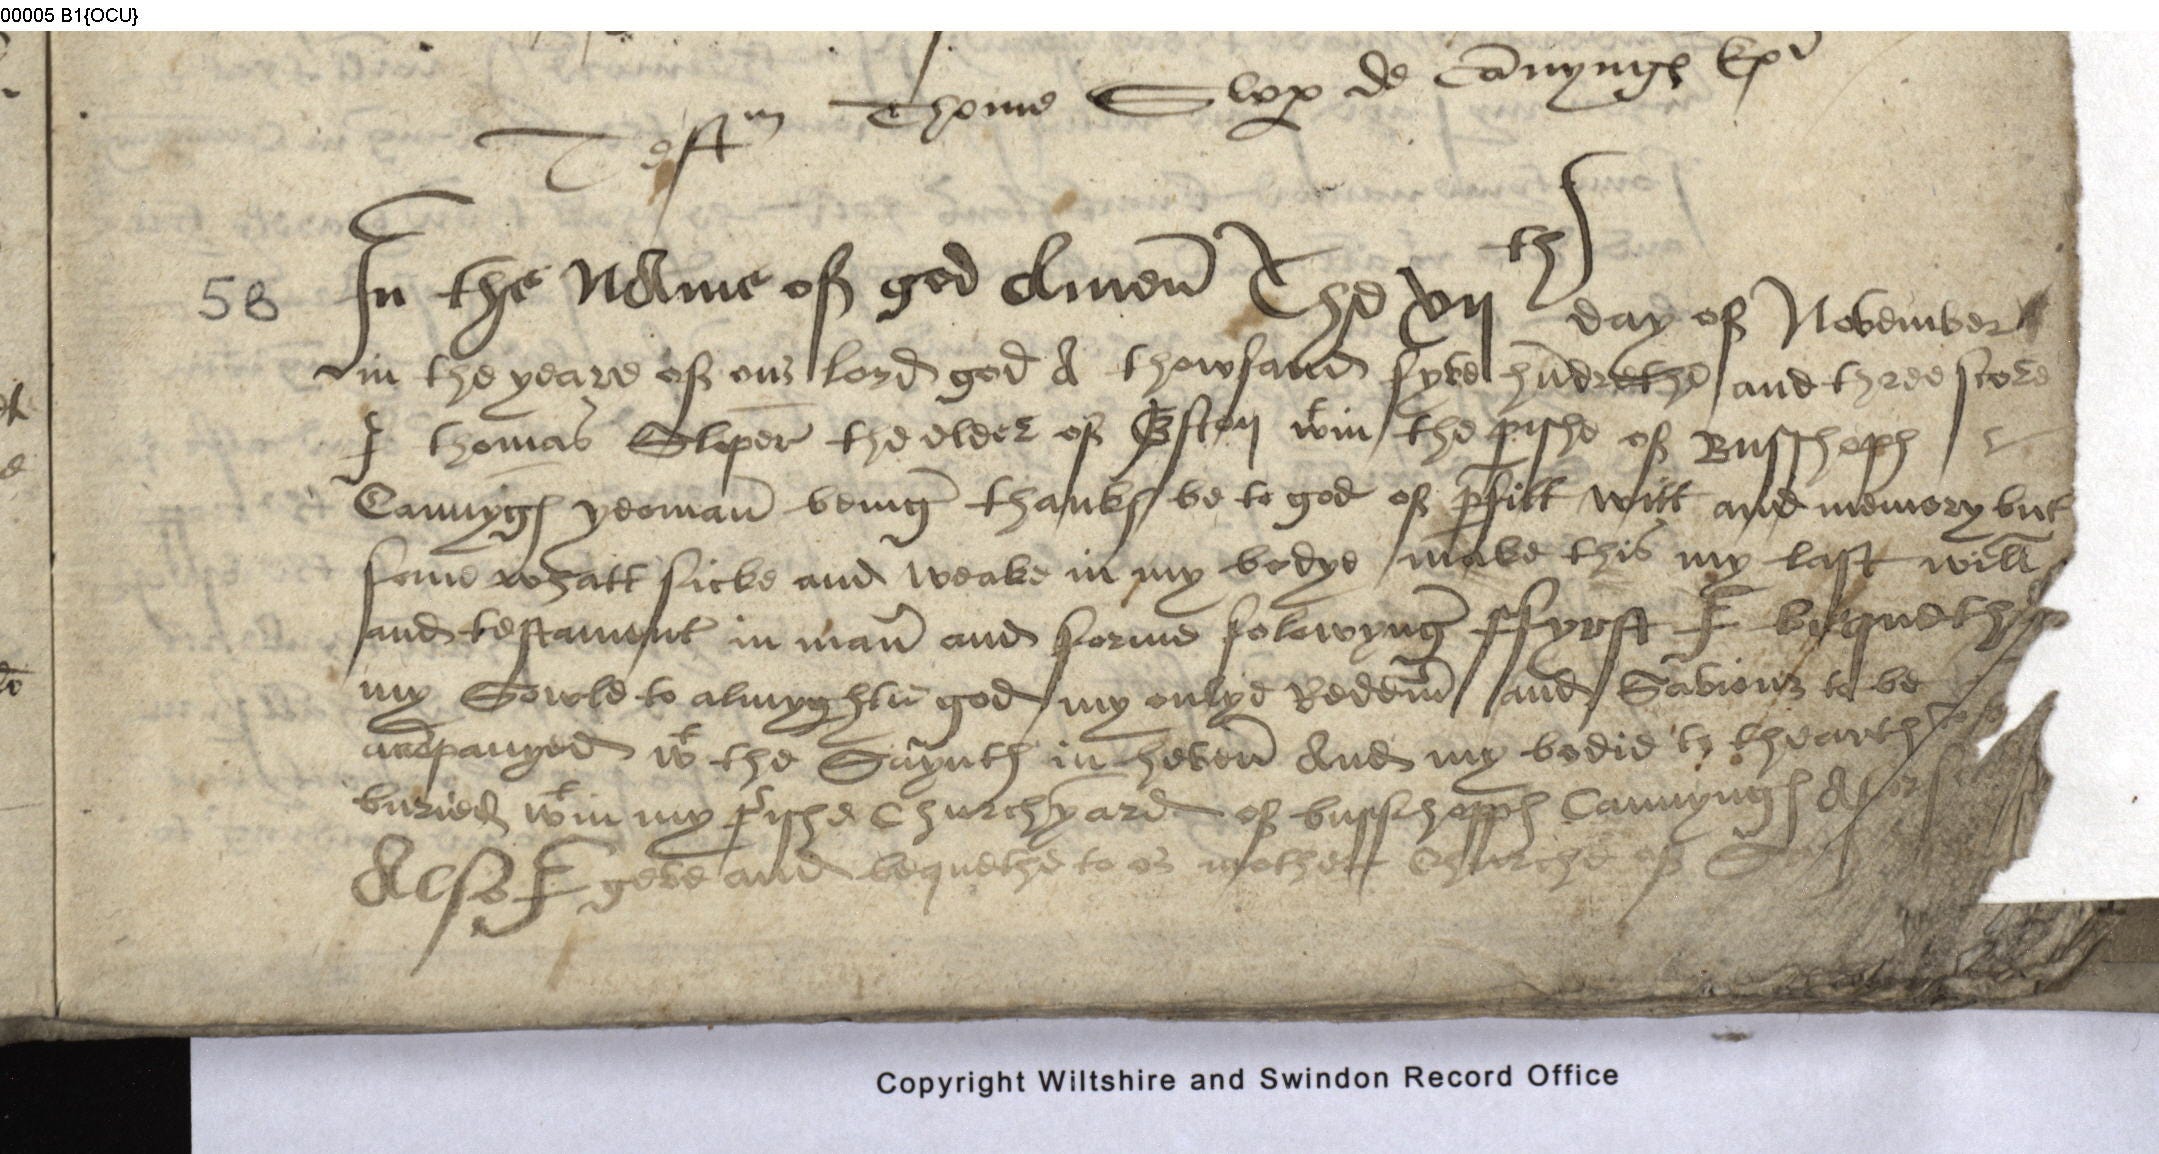 00005 B1{OCU}
Testm Thome Slop de Cānyngs Epi
58
In the Name of god Amen The xijth day of November
in the yeare of our lord god A thowsand fyve hūdrethe and three score
I thomas Sloper the elder of Eston wtin the pishe of Busshoph
Cannygs yeoman beīng thanks be to god of pfitt witt and memory but
some whatt sicke and weake in my bodye make this my last will
and testament in manr and forme folowyng ffyrst I bequethe
my Sowle to almyghtie god my onlye Redemr and Saviour to be
accōpanyed wt the Saynts in heven And my bodie to thearth
buried wtin my pishe Churchyard of busshopps Cannyngs
Also I geve and bequethe to or mother Churche of
Copyright Wiltshire and Swindon Record Office